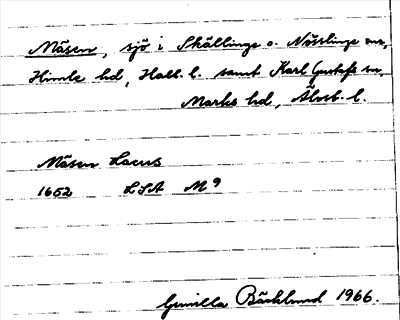 Mäsen, sjö i Skällinge o. Nösslinge snr,
Himle hd, Hall. l. samt Karl Gustafs sn,
Marks hd, Älvsb. l.
Mäsen Lacus
1652 LSA M 9
Gunilla Bäcklund 1966.